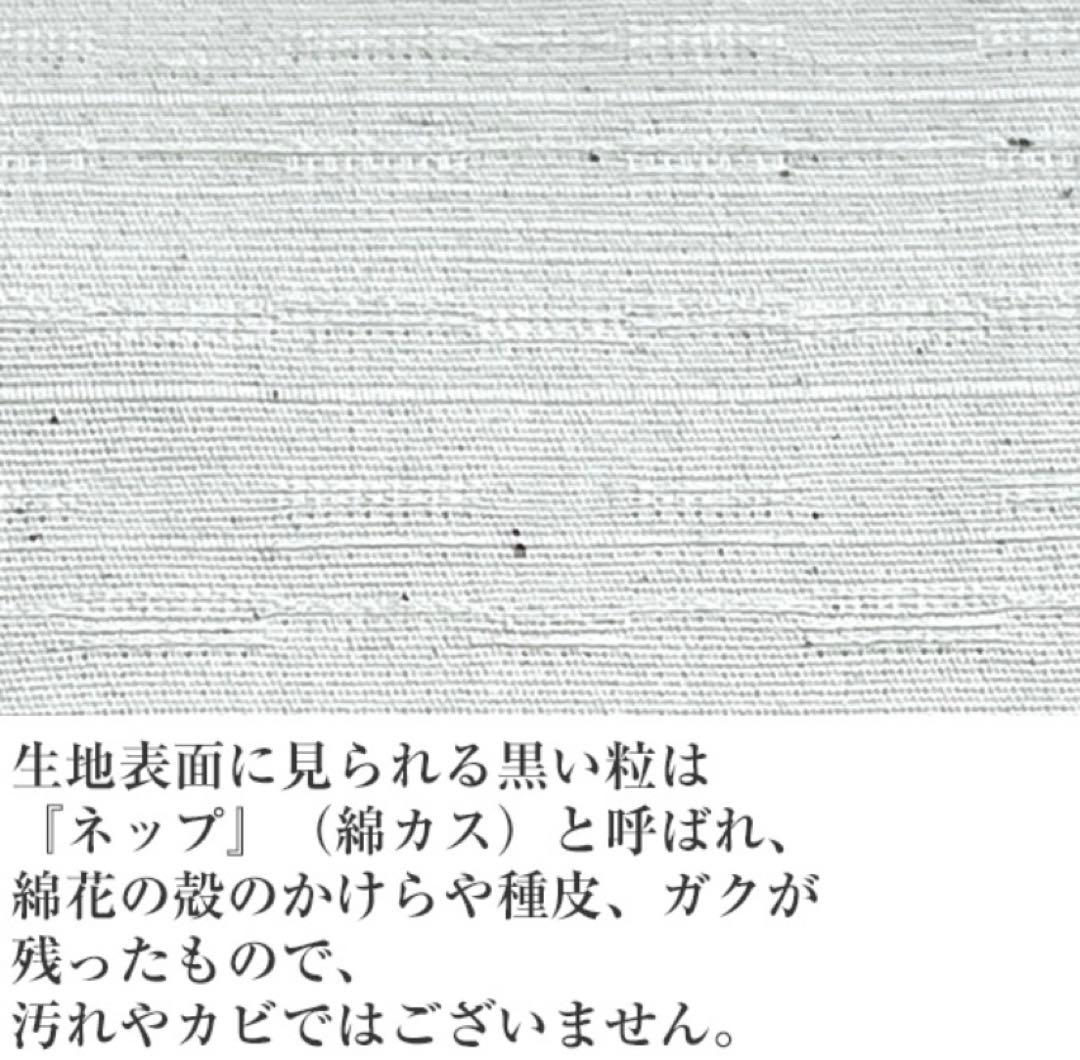 生地表面に見られる黒い粒は
『ネップ』（綿カス）と呼ばれ、
綿花の殻のかけらや種皮、ガクが
残ったもので、
汚れやカビではございません。